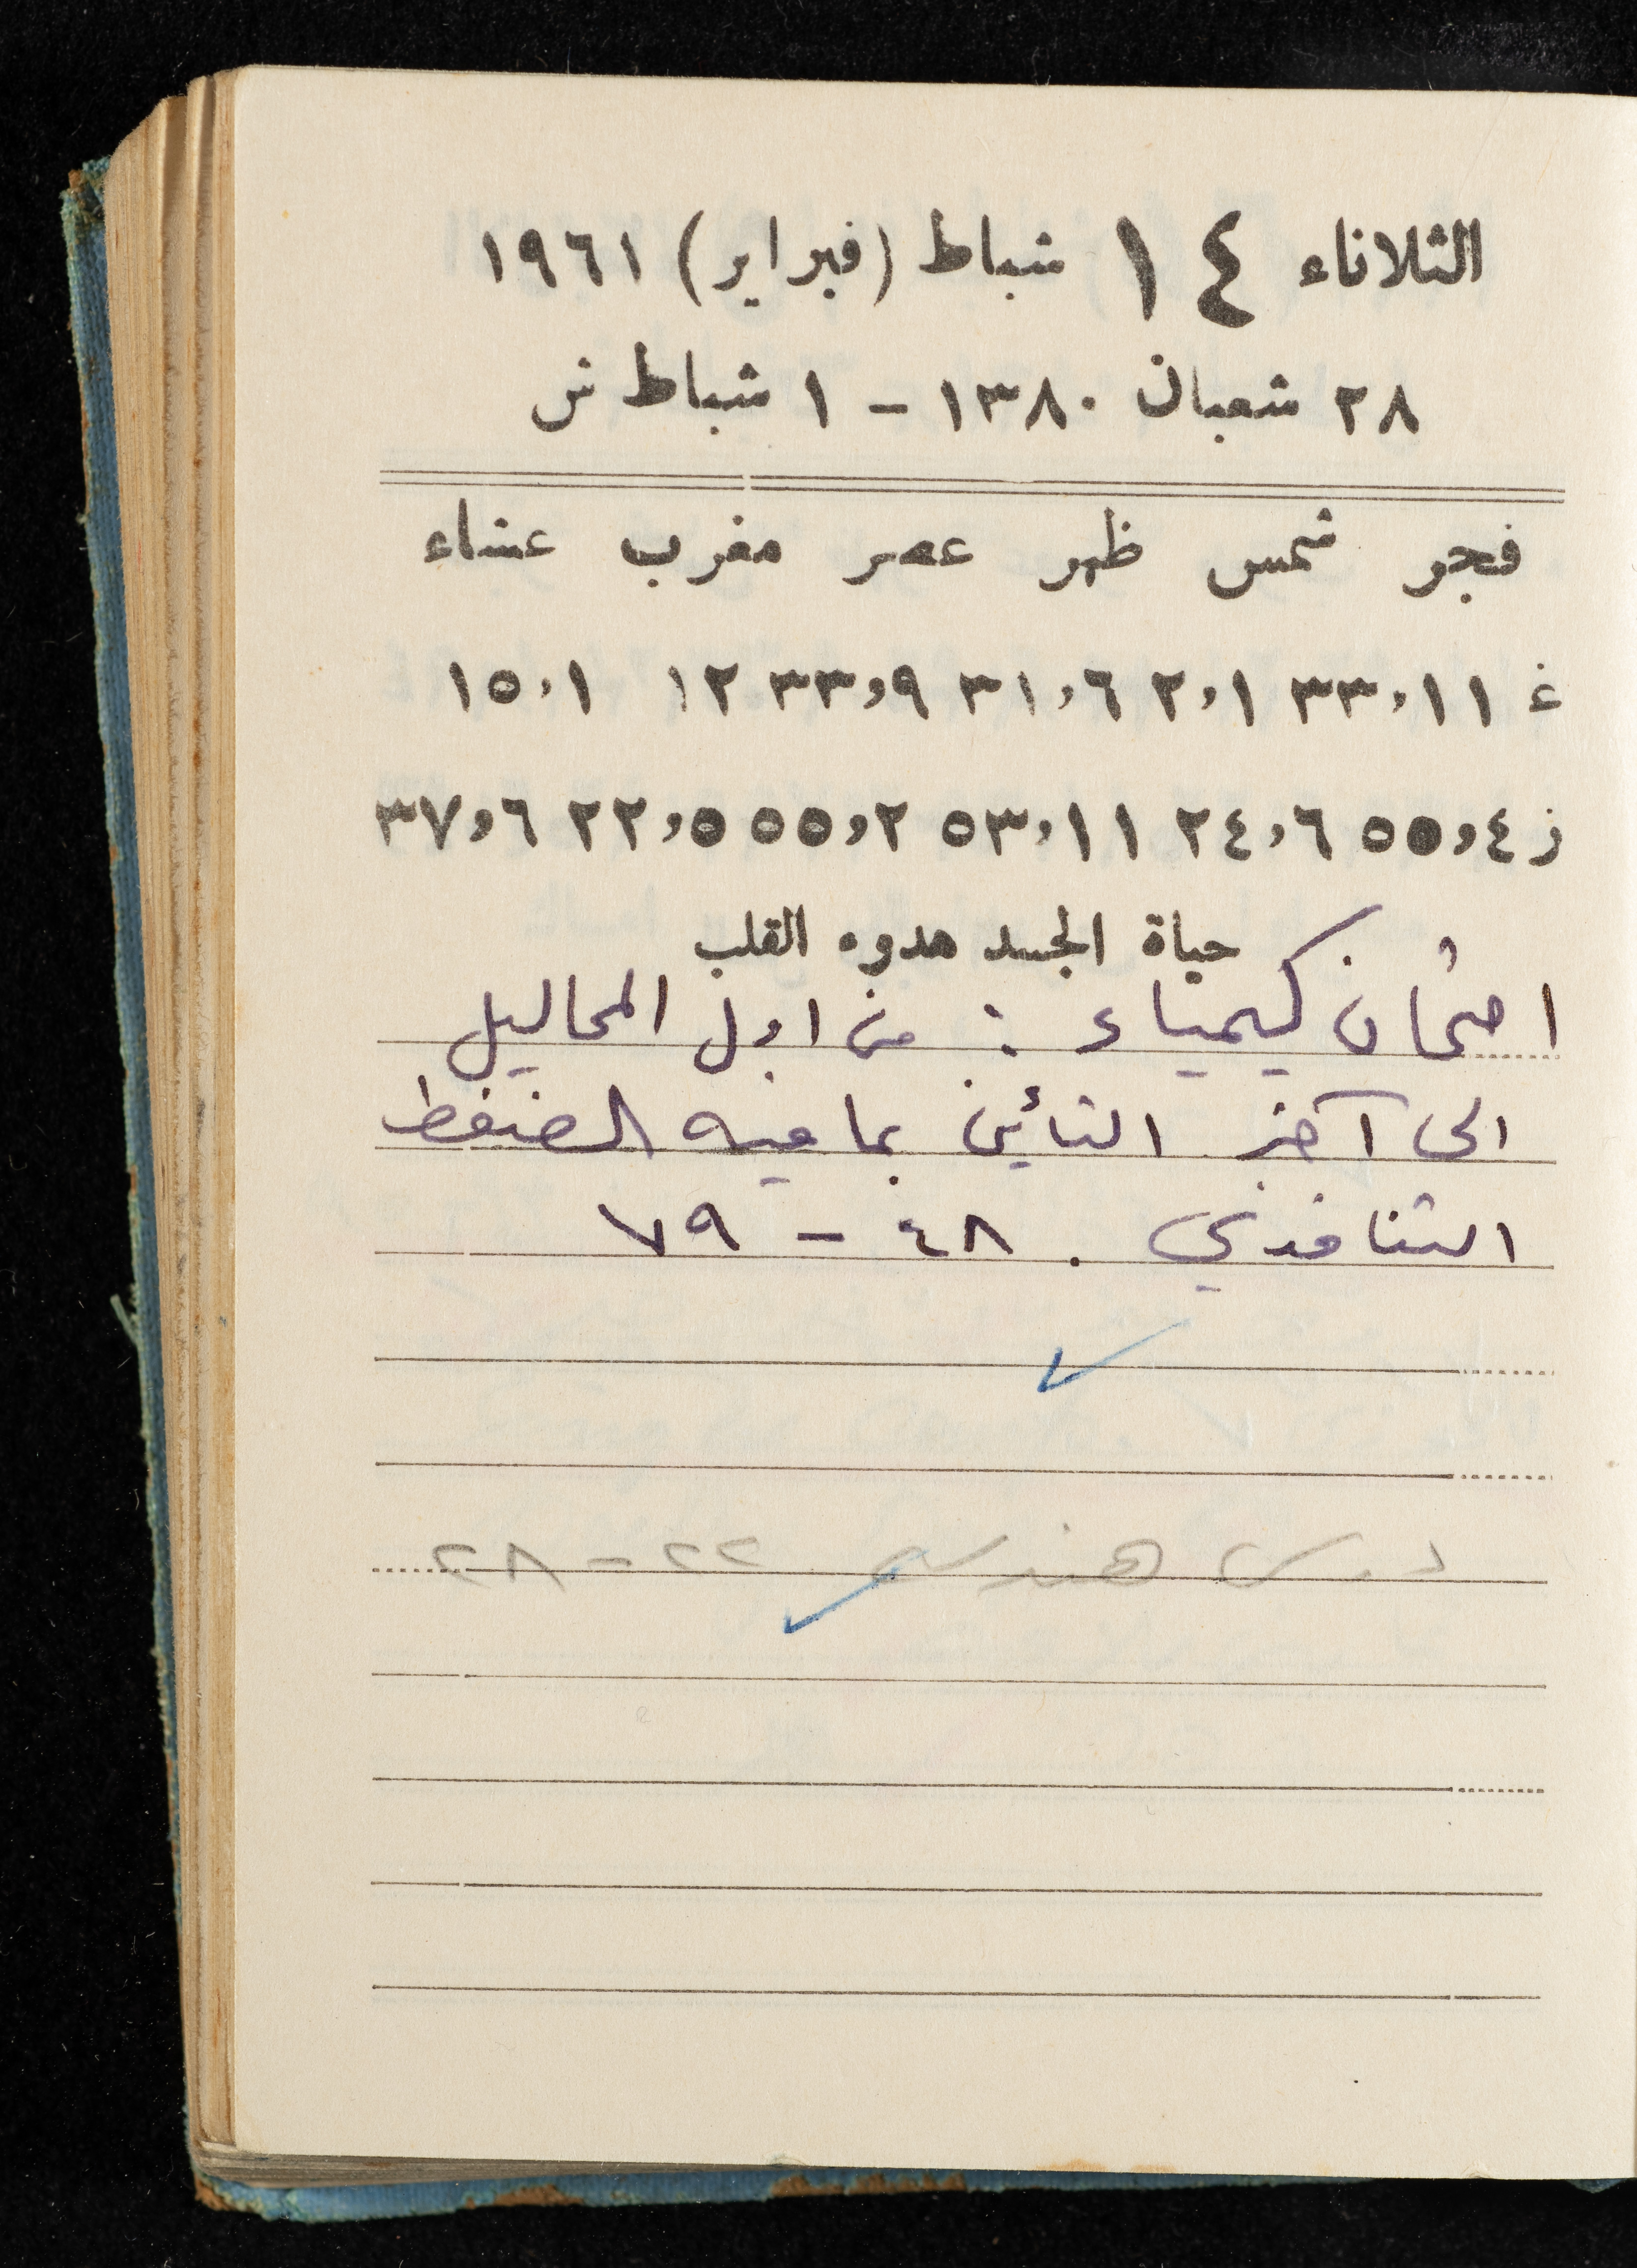 الثلاثاء ١٤ شباط (فبراير) ١٩٦١
٢٨ شعبان ١٣٨٠ – ١ شباط ش
فجر شمس ظهر عصر مغرب عشاء
غ ١١,٣٣ ١,٢ ٦,٣١ ٩,٣٣ ١٢ ١,١٥
ز ٤,٥٥ ٦,٢٤ ١١,٥٣ ٢,٥٥ ٥,٢٢ ٦,٣٧
حياة الجسد هدوء القلب
امتحان كيمياء : من اول المحاليل
الى آخر التأين بما فيه الضغط
التنافذي . ٤٨ – ٧٩
درس هندسة ٢٢ – ٢٨